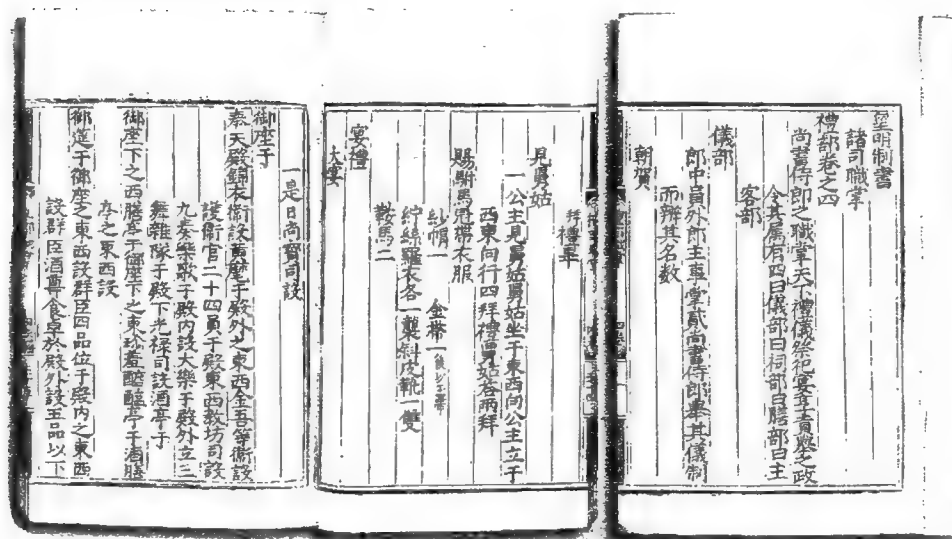 皇明制書
諸司職掌
禮部卷之四
尚書侍郎之職掌天下禮儀祭祀宴享貢舉之政
令其屬有四曰儀部曰祠部曰膳部曰主
客部
儀部
郎中員外郎主事掌貳尚書侍郎舉其儀制
而辨其名数
朝賀
拜禮畢
見舅姑
一公主見舅姑舅姑坐于東西向公主立于
西東向行四拜禮舅姑答兩拜
賜駙馬冠帶衣服
紗帽一 金帶一
紵絲羅衣各一襲斜皮靴一雙
鞍馬二
宴禮
大宴
一是日尚寳司設
御座于
奉天殿錦衣衛設黄麾于殿外之東西金吾等衛設
護衛官二十四員于殿東西教坊司設
九奏樂歌于殿内設大樂于殿外立三
舞雜隊于殿下光禄司設酒亭于
御座下之西膳亭于御座下之東珍羞醯醢亭于酒膳
亭之東西設
御筵于御座之東西設群臣四品位于殿内之東西
設群臣酒尊食卓於殿外設五品以下